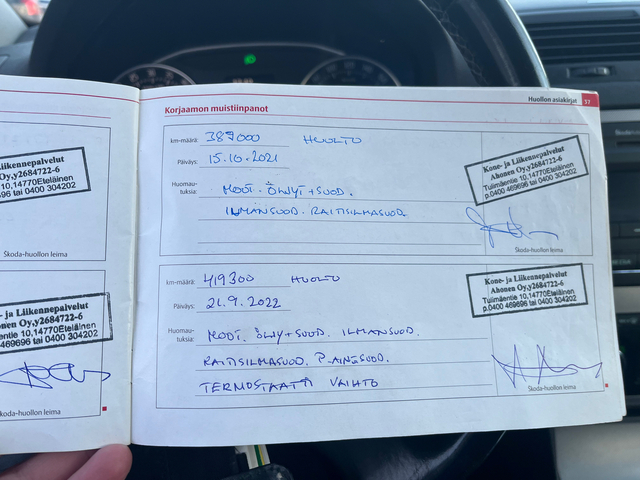 Liikennepalvelut
Oy,y2684722-6
10,14770Eteläinen
96 tai 0400 304202
Škoda-huollon leima
ja Liikennepalvelut
Ahonen Oy,y2684722-6
Tulimäentie 10,14770Eteläinen
469696 tai 0400 304202
Škoda-huollon leima
Korjaamon muistiinpanot
Huollon asiakirjat 57
km-määrä: 387000 HUOLTO
Päiväys: 15.10.2021
Huomau-
tuksia: MOOT. ÖLJYT+SUOD.
ILMANSUOD. RAITISILMASUOD.
Kone- ja Liikennepalvelut
Ahonen Oy,y2684722-6
Tulimäentie 10,14770Eteläinen
p.0400 469696 tai 0400 304202
Škoda-huollon leima
km-määrä: 419300 HUOLTO
Päiväys: 21.9.2022
Huomau-
tuksia: MOOT. ÖLJY+SUOD. ILMANSUOD.
RAITISILMASUOD. P-AINESUOD.
TERMOSTAATTI VAIHTO
Kone- ja Liikennepalvelut
Ahonen Oy,y2684722-6
Tulimäentie 10,14770Eteläinen
p.0400 469696 tai 0400 304202
Škoda-huollon leima